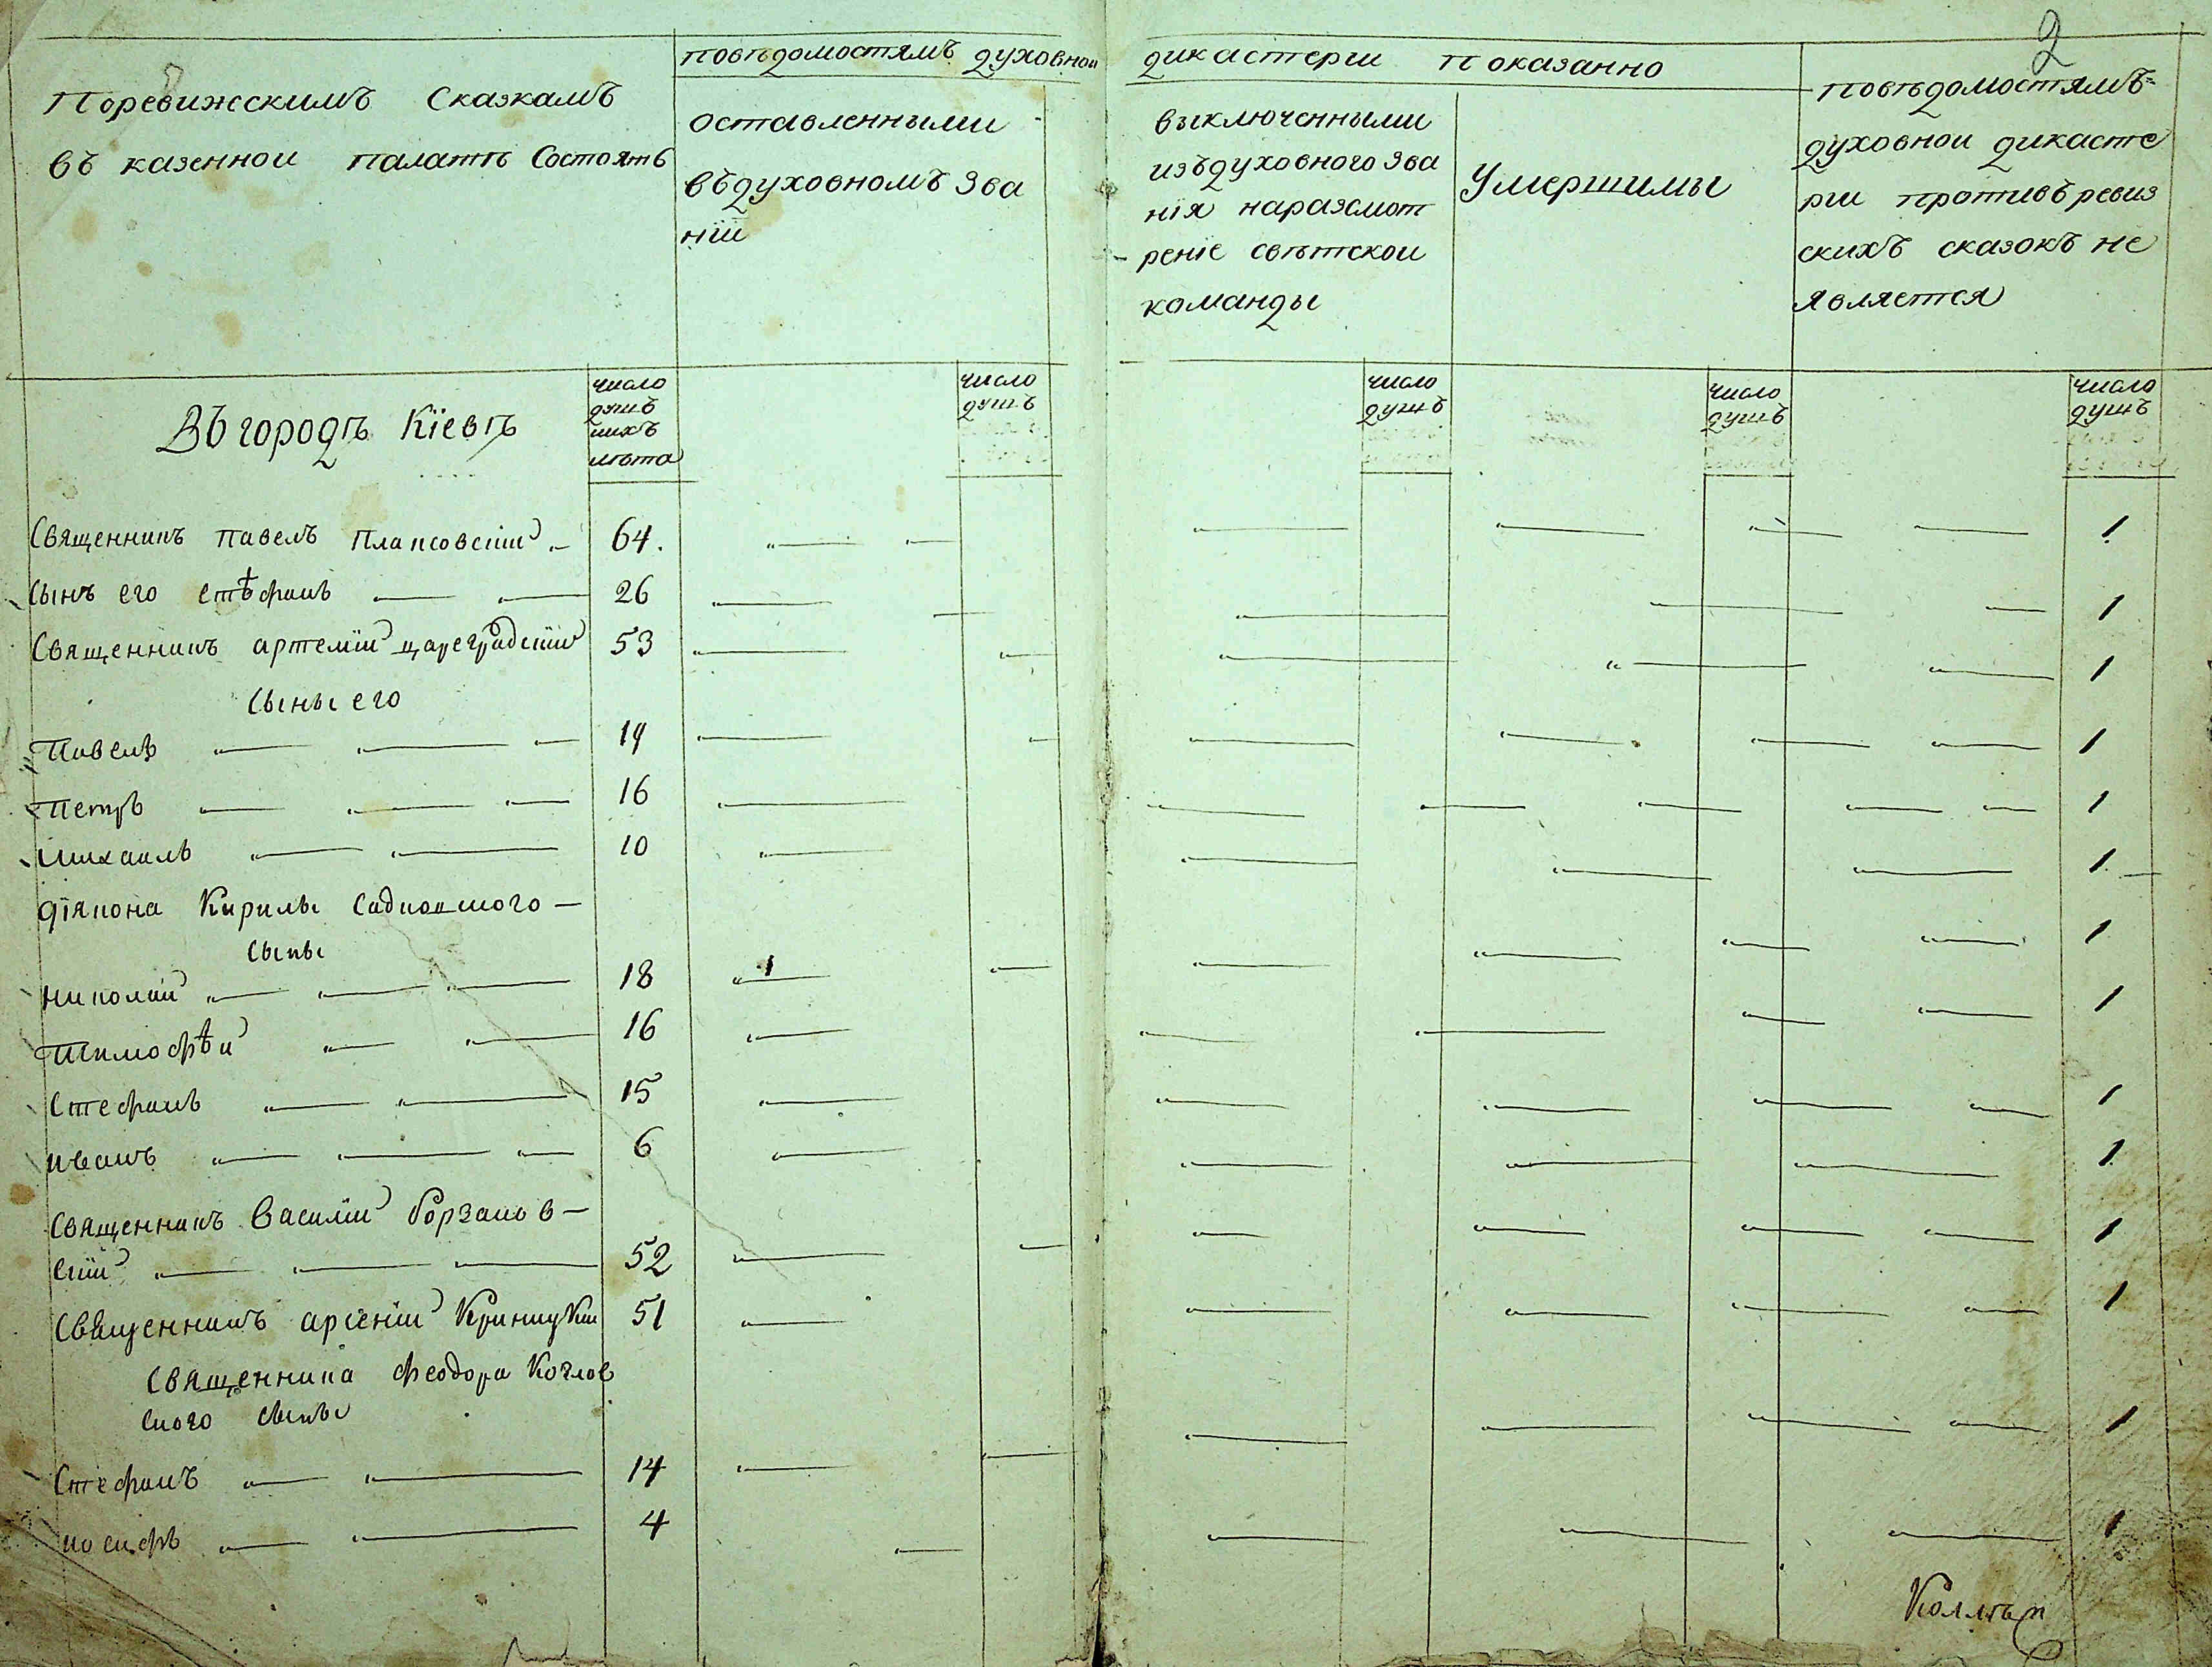 2
Поревижскимъ Сказкамъ
въ казенной палатѣ Состоятъ
повѣдомостямъ духовной дикастерги показанно
оставленными
въдуховномъ Зва
нїи
выключенными
изъдуховного Зва
нїя наразсмот
ренїе свѣтской
команды
Умершимы
повѣдомостямъ
духовной дикасте
рги противъ ревиз
скихъ сказокъ не
является
Въ городѣ Кїевѣ
число душъ ихъ лѣта
число душъ
число душъ
число душъ
число душъ
Священникъ павелъ 64. 1
сынъ его стѣфанъ 26 1
Священникъ артемїй цареградскїй 53 1
сыны его
Павелъ 19 1
петръ 16 1
михаилъ 10 1
дїякона Кирилы
сыны
николай 18 1
тимофѣй 16 1
Стефанъ 15 1
иванъ 6 1
Священникъ василїй борзаков–
скїй 52 1
Священникъ арсенїй Криницкїй 51 1
священника феодора Козлов
ского сыны
Стефанъ 14 1
иосифъ 4 1